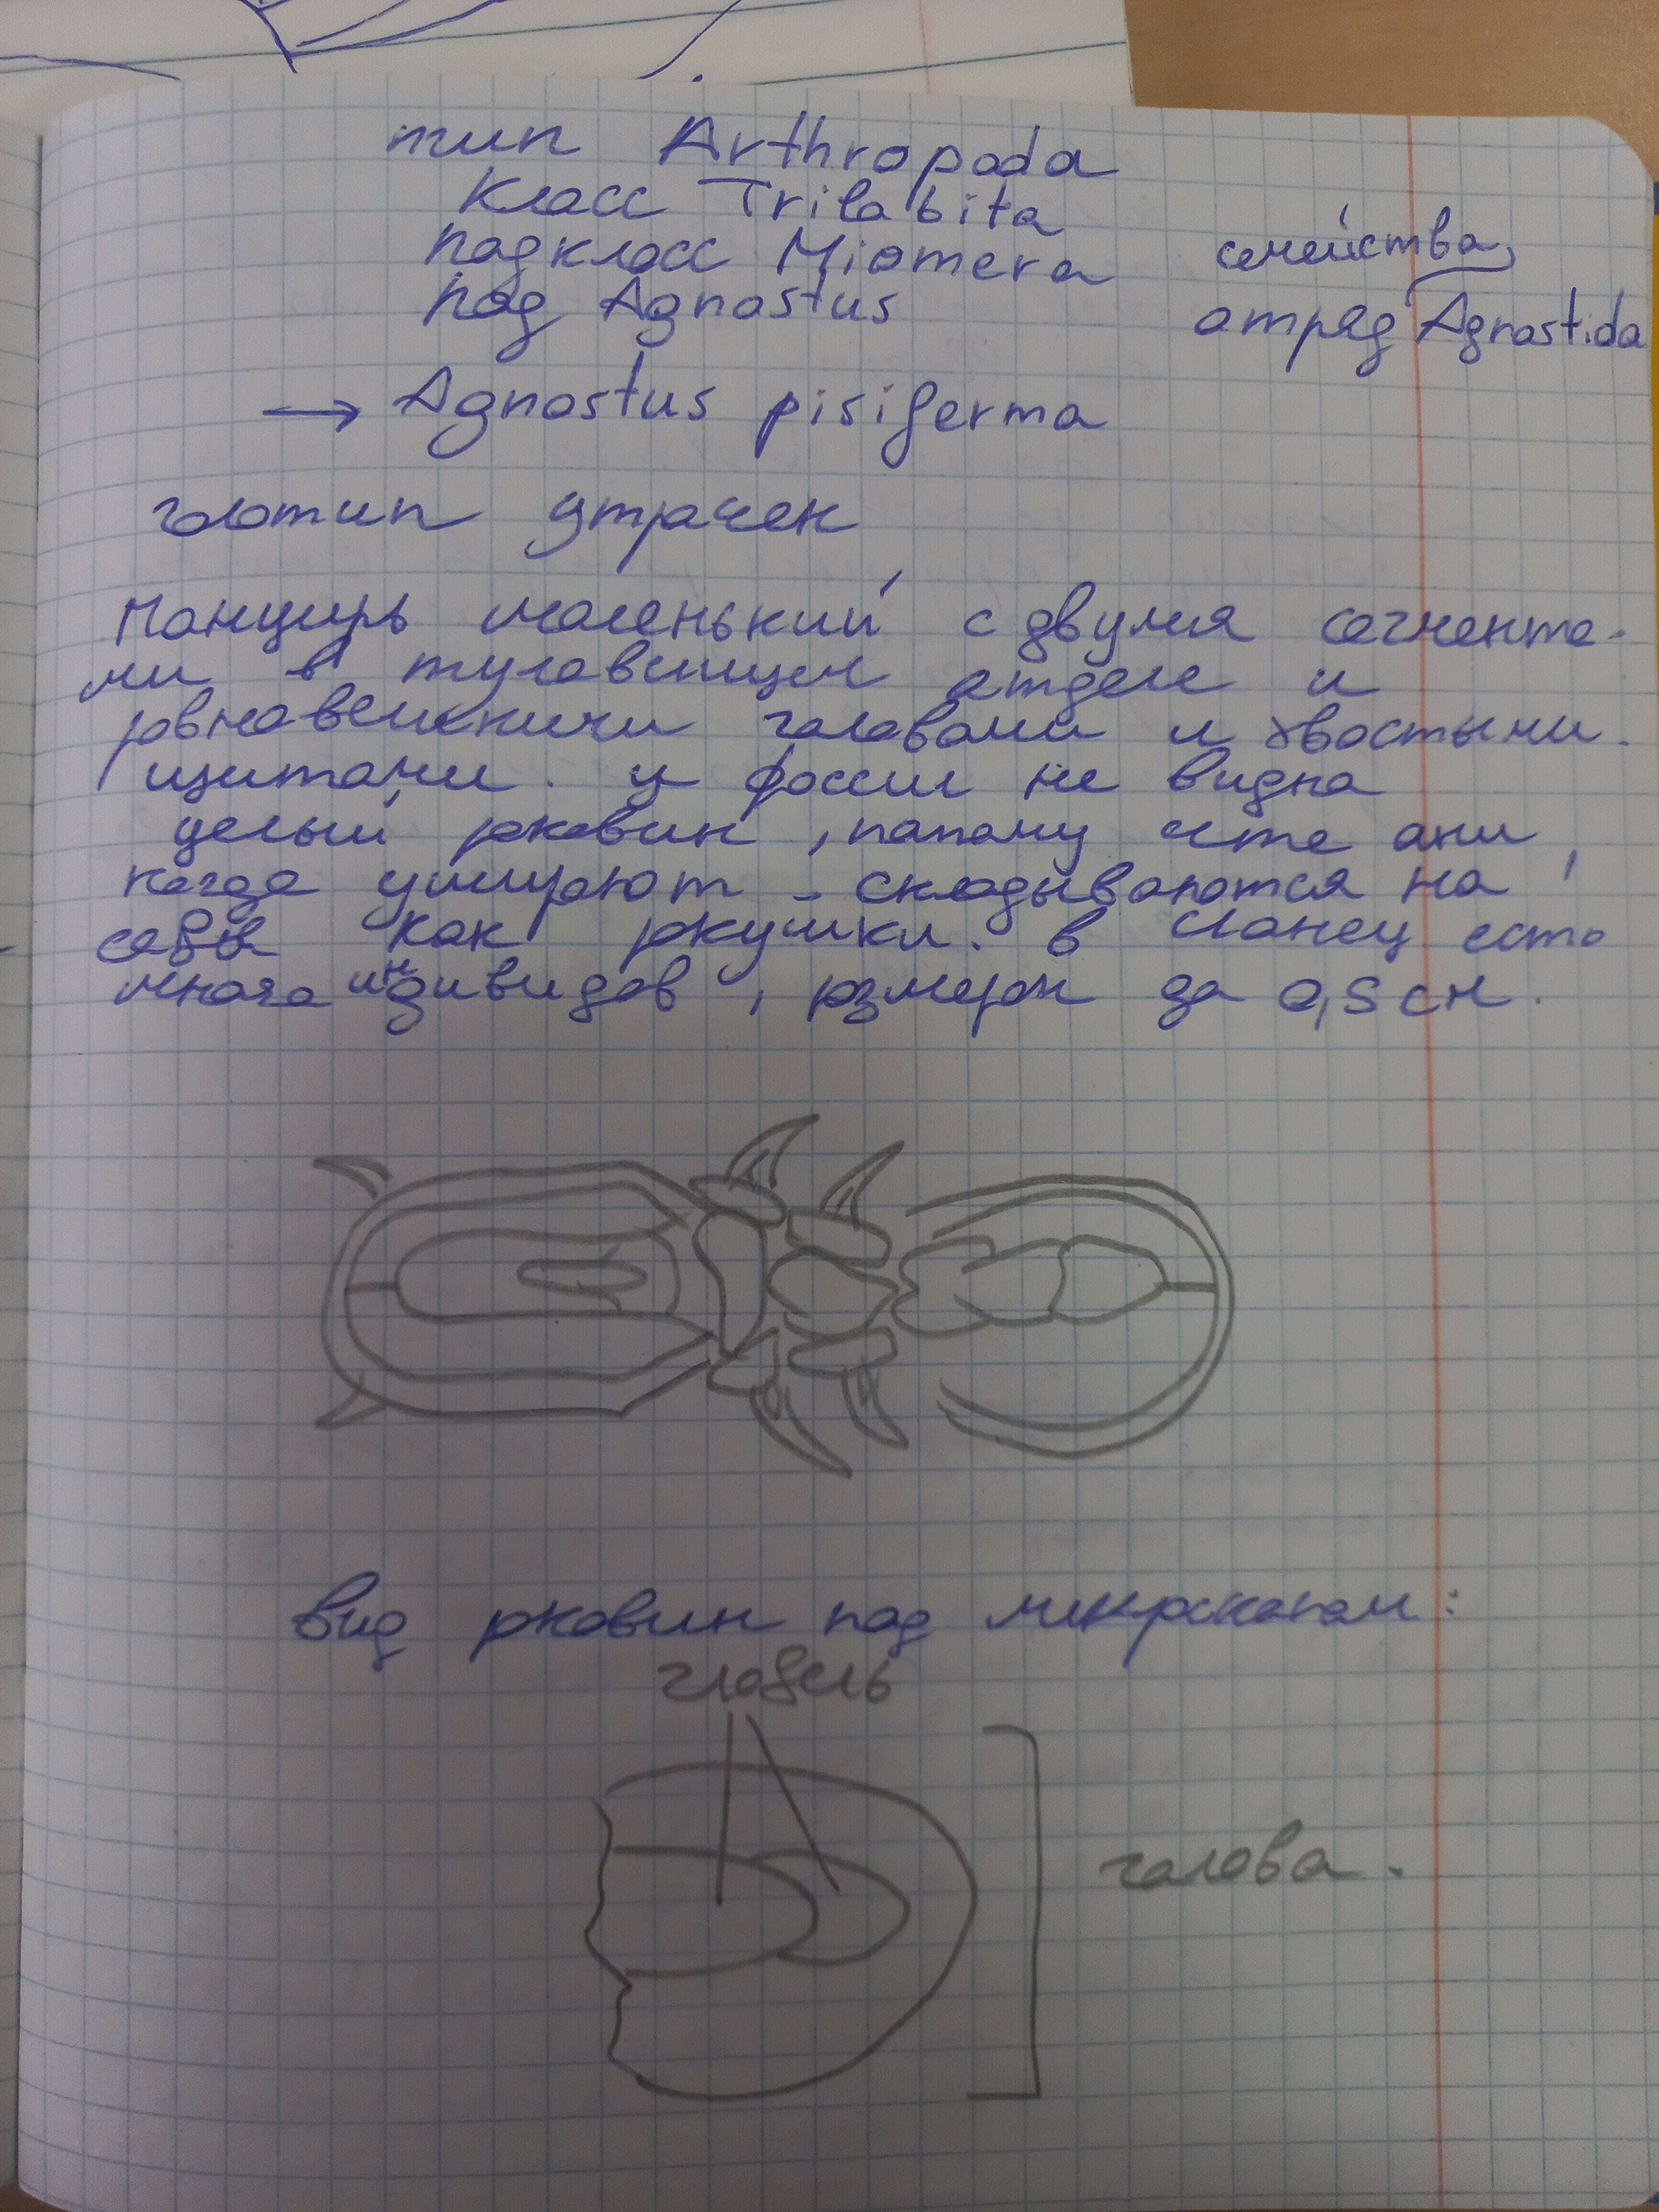 тип Arthropoda
класс Trilobita
подкласс Miomera
семейства
род Agnostus
отряд Agnostida
→ Agnostus pisiforma
голотип утрачен
Панцирь маленький с двумя сегмента-
ми в туловищем отделе и
ровновеликими головами и хвостыми
щитами. у фоссил не видна
целый ркавин, потому что они,
когда умирают - складываются на
себя как ркушки. в сланец есть
много индивидов, рзмером до 0,5 см.
вид рковин под микрскопом:
глабель
голова.